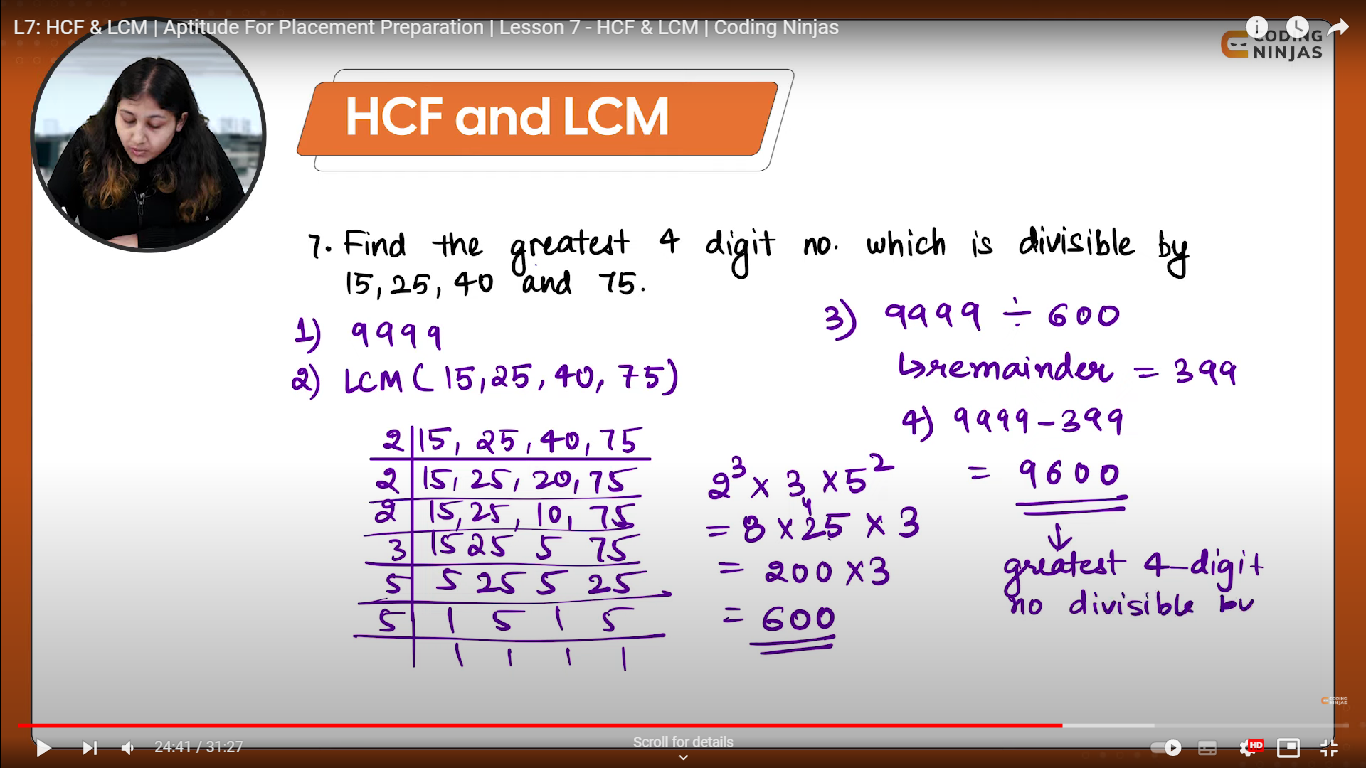 L7: HCF & LCM | Aptitude For Placement Preparation | Lesson 7 - HCF & LCM | Coding Ninjas
CODING
NINJAS
HCF and LCM
7. Find the greatest 4 digit no. which is divisible by
15, 25, 40 and 75.
1) 9999
2) LCM ( 15, 25, 40, 75)
2 | 15, 25, 40, 75
2 | 15, 25, 20, 75
2 | 15, 25, 10, 75
3 | 15 25 5 75
5 | 5 25 5 25
5 | 1 5 1 5
1 1 1 1
2³ × 3 × 5²
= 8 × 25 × 3
= 200 × 3
= 600
3) 9999 ÷ 600
↳ remainder = 399
4) 9999 - 399
= 9600
↓
greatest 4-digit
no divisible by
CODING
NINJAS
24:41 / 31:27
Scroll for details
HD